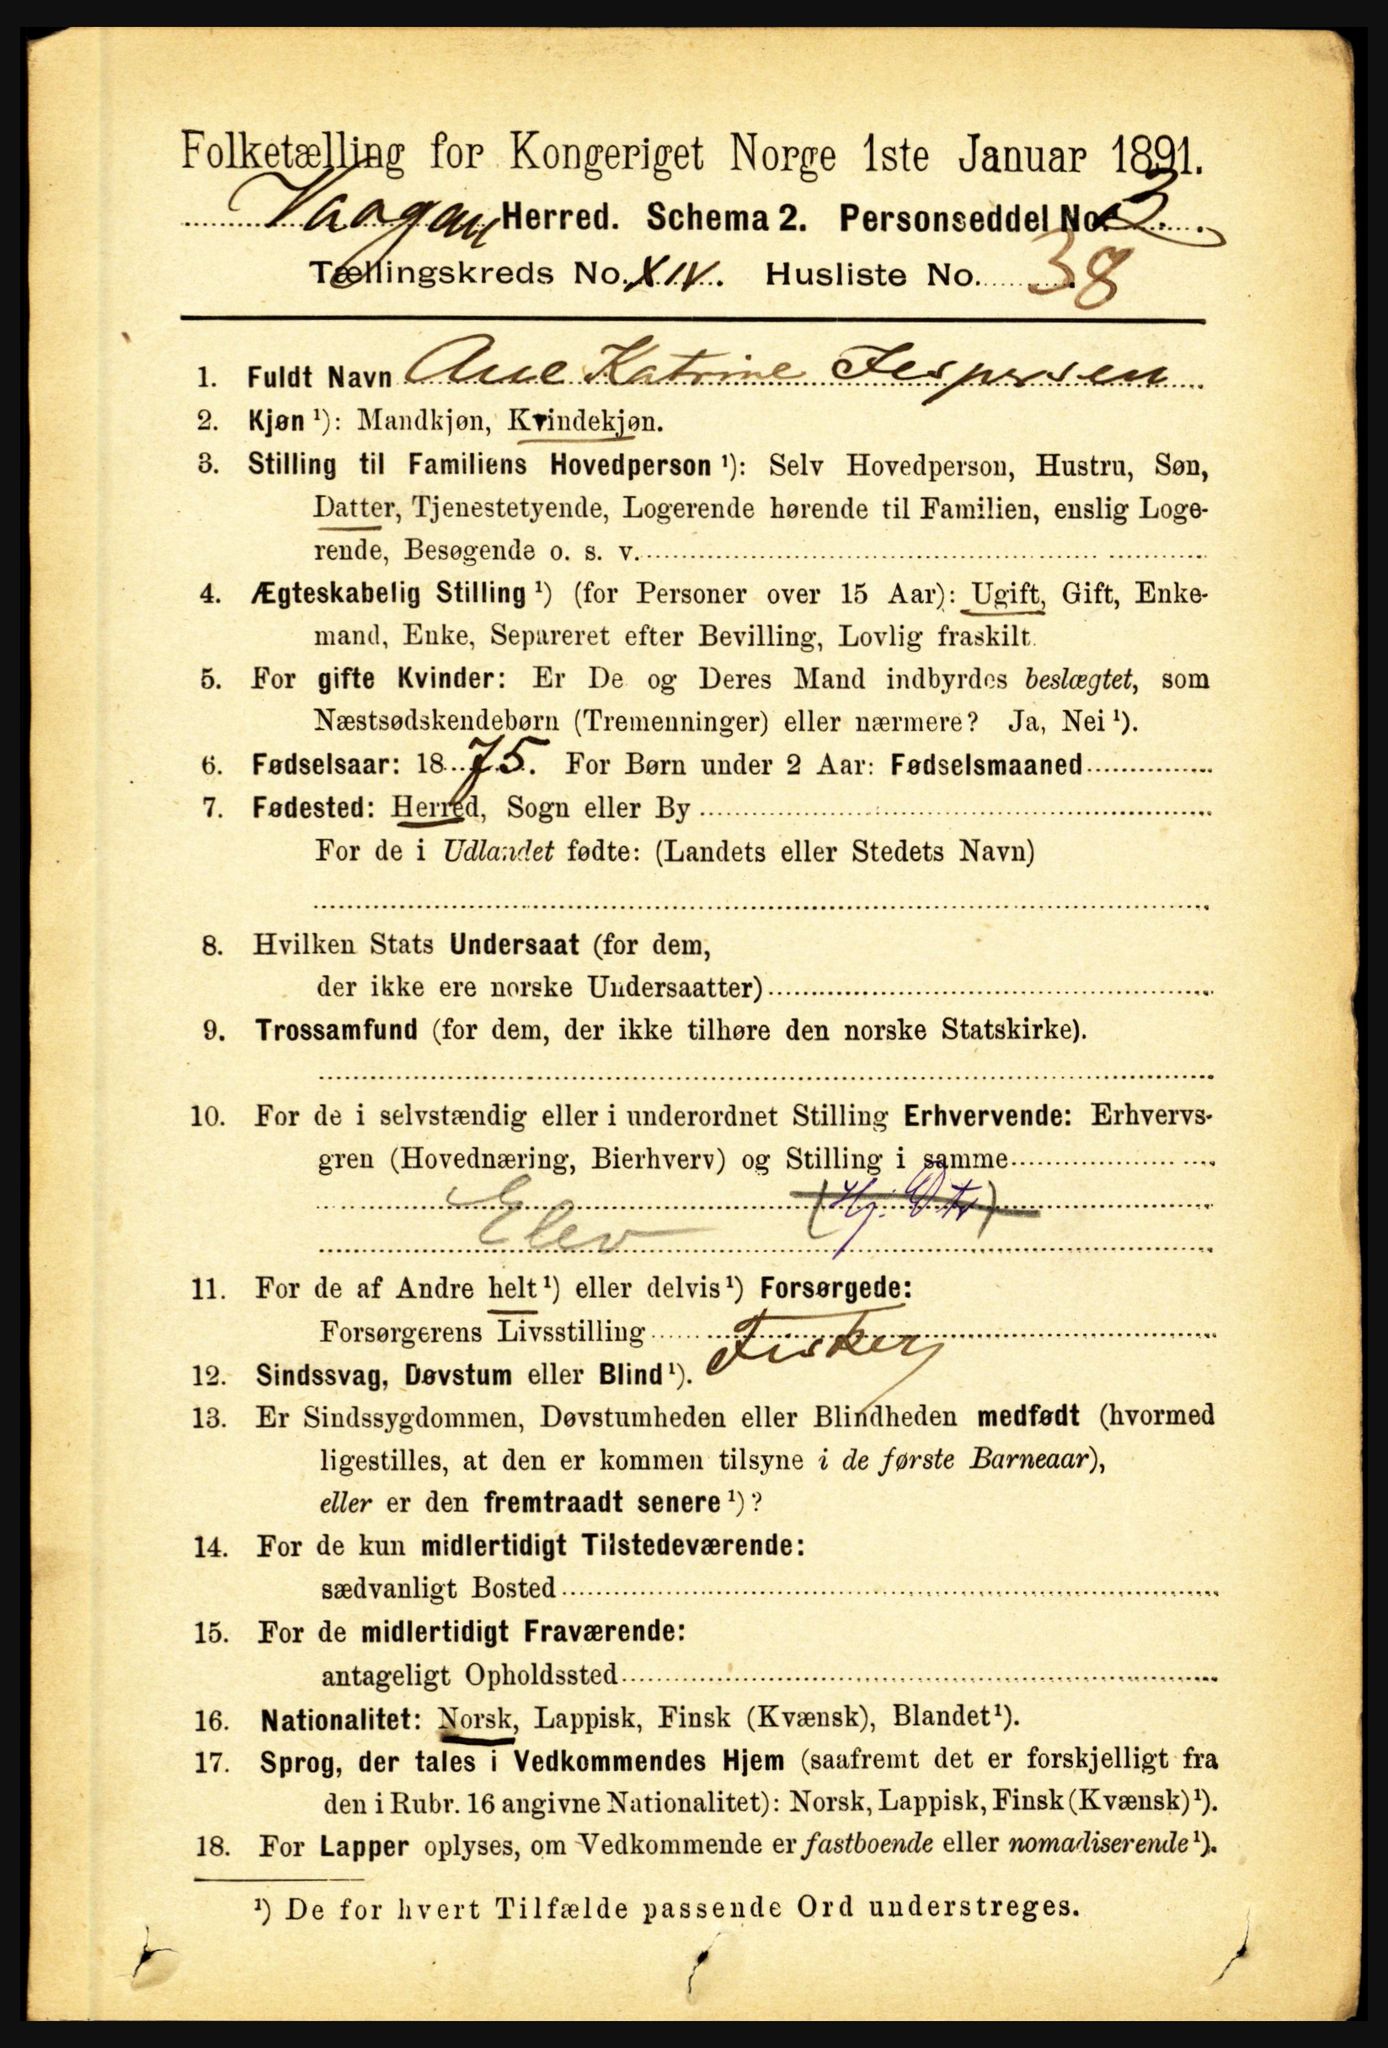 Folketælling for Kongeriget Norge 1ste Januar 1891.
Vaagan Herred. Schema 2. Personseddel No. 3.
Tællingskreds No. XIV. Husliste No. 38
1. Fuldt Navn Ane Katrine Jespersen
2. Kjøn ¹): Mandkjøn, Kvindekjøn.
3. Stilling til Familiens Hovedperson ¹): Selv Hovedperson, Hustru, Søn,
Datter, Tjenestetyende, Logerende hørende til Familien, enslig Loge-
rende, Besøgende o. s. v.
4. Ægteskabelig Stilling ¹) (for Personer over 15 Aar): Ugift, Gift, Enke-
mand, Enke, Separeret efter Bevilling, Lovlig fraskilt.
5. For gifte Kvinder: Er De og Deres Mand indbyrdes beslægtet, som
Næstsødskendebørn (Tremenninger) eller nærmere? Ja, Nei ¹).
6. Fødselsaar: 1875. For Børn under 2 Aar: Fødselsmaaned
7. Fødested: Herred, Sogn eller By
For de i Udlandet fødte: (Landets eller Stedets Navn)
8. Hvilken Stats Undersaat (for dem,
der ikke ere norske Undersaatter)
9. Trossamfund (for dem, der ikke tilhøre den norske Statskirke).
10. For de i selvstændig eller i underordnet Stilling Erhvervende: Erhvervs-
gren (Hovednæring, Bierhverv) og Stilling i samme
(Hj. Dtr)
Elev
11. For de af Andre helt ¹) eller delvis ¹) Forsørgede:
Forsørgerens Livsstilling Fisker
12. Sindssvag, Døvstum eller Blind ¹).
13. Er Sindssygdommen, Døvstumheden eller Blindheden medfødt (hvormed
ligestilles, at den er kommen tilsyne i de første Barneaar),
eller er den fremtraadt senere ¹)?
14. For de kun midlertidigt Tilstedeværende:
sædvanligt Bosted
15. For de midlertidigt Fraværende:
antageligt Opholdssted
16. Nationalitet: Norsk, Lappisk, Finsk (Kvænsk), Blandet ¹).
17. Sprog, der tales i Vedkommendes Hjem (saafremt det er forskjelligt fra
den i Rubr. 16 angivne Nationalitet): Norsk, Lappisk, Finsk (Kvænsk) ¹).
18. For Lapper oplyses, om Vedkommende er fastboende eller nomadiserende ¹).
¹) De for hvert Tilfælde passende Ord understreges.